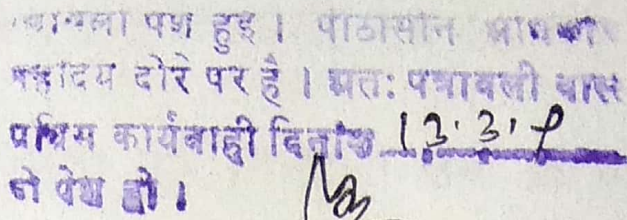 पत्रावली पेश हुई। पीठासीन अधिकारी
महोदय दौरे पर है। अतः पत्रावली वास्ते
अग्रिम कार्यवाही दिनांक 13.3.
को पेश हो।